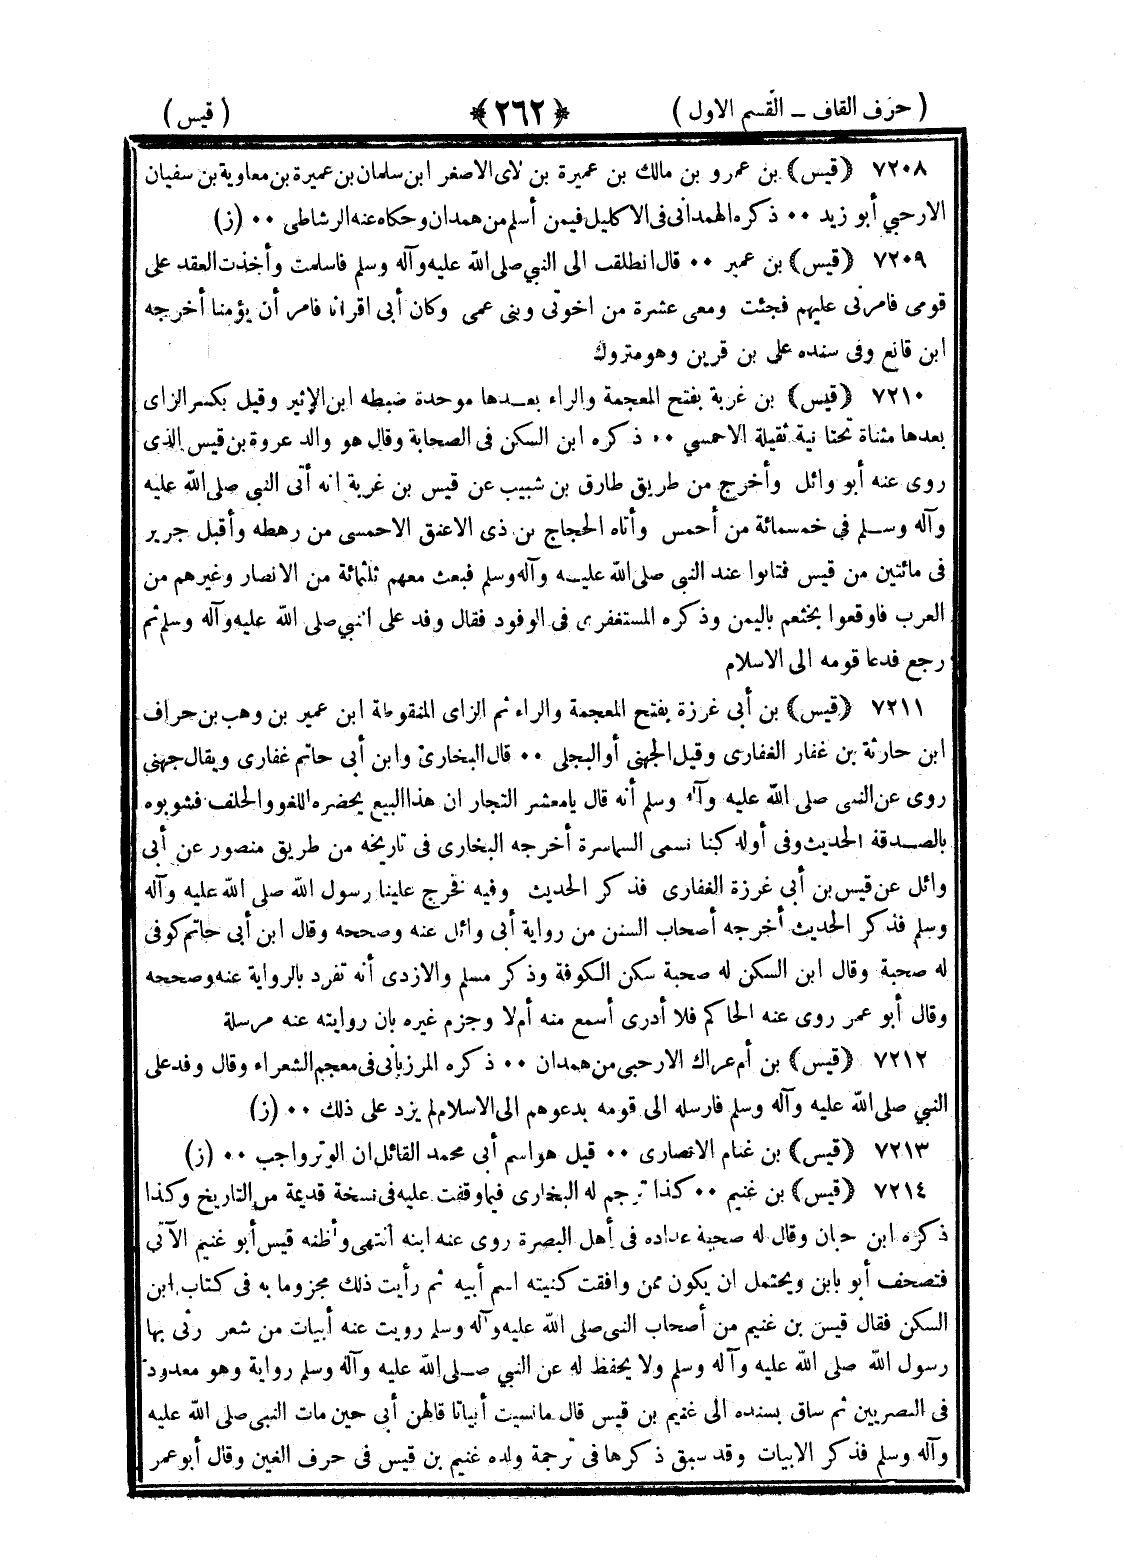 ( حرف القاف ــ القسم الاول ) ﴿٢٦٢﴾ ( قيس )
٧٢٠٨ ﴿قيس﴾ بن عمرو بن مالك بن عميرة بن لاى الاصغر ابن سلمان بن عميرة بن معاوية بن سفيان
الارحبي أبو زيد ٠٠ ذكره الهمدانى فى الاكليل فيمن أسلم من همدان وحكاه عنه الرشاطى ٠٠ (ز)
٧٢٠٩ ﴿قيس﴾ بن عمير ٠٠ قال انطلقت الى النبي صلى الله عليه وآله وسلم فاسلمت وأخذت العقد على
قومى فامرنى عليهم فجئت ومعى عشرة من اخوتى وبنى عمى وكان أبى اقرانا فامر أن يؤمنا أخرجه
ابن قانع وفى سنده على بن قرين وهو متروك
٧٢١٠ ﴿قيس﴾ بن غربة بفتح المعجمة والراء بعــدها موحدة ضبطه ابن الإثير وقيل بكسر الزاى
بعدها مثناة تحتانية ثقيلة الاحمسي ٠٠ ذكره ابن السكن فى الصحابة وقال هو والد عروة بن قيس الذى
روى عنه أبو وائل وأخرج من طريق طارق بن شبيب عن قيس بن غربة انه أتى النبي صلى الله عليه
وآله وســلم في خمسمائة من أحمس وأتاه الحجاج بن ذى الاعنق الاحمسى من رهطه وأقبل جرير
فى مائتين من قيس فتابوا عند النبى صلى الله عليــه وآله وسلم فبعث معهم ثلثمائة من الانصار وغيرهم من
العرب فاوقعوا بخثعم باليمن وذكره المستغفرى فى الوفود فقال وفد على النبي صلى الله عليه وآله وسلم ثم
رجع فدعا قومه الى الاسلام
٧٢١١ ﴿قيس﴾ بن أبى غرزة بفتح المعجمة والراء ثم الزاى المنقوطة ابن عمير بن وهب بن حراف
ابن حارثة بن غفار الغفارى وقيل الجهنى أو البجلى ٠٠ قال البخارى وابن أبى حاتم غفارى ويقال جهنى
روى عن النبى صلى الله عليه وآله وسلم أنه قال يامعشر التجار ان هذا البيع يحضره اللغو والحلف فشوبوه
بالصــدقة الحديث وفى أوله كنا نسمى السماسرة أخرجه البخارى فى تاريخه من طريق منصور عن أبى
وائل عن قيس بن أبى غرزة الغفارى فذكر الحديث وفيه فخرج علينا رسول الله صلى الله عليه وآله
وسلم فذكر الحديث أخرجه أصحاب السنن من رواية أبى وائل عنه وصححه وقال ابن أبى حاتم كوفى
له صحبة وقال ابن السكن له صحبة سكن الكوفة وذكر مسلم والازدى أنه تفرد بالرواية عنه وصححه
وقال أبو عمر روى عنه الحاكم فلا أدرى أسمع منه أم لا وجزم غيره بان روايته عنه مرسلة
٧٢١٢ ﴿قيس﴾ بن أم عراك الارحبى من همدان ٠٠ ذكره المرزبانى فى معجم الشعراء وقال وفد على
النبي صلى الله عليه وآله وسلم فارسله الى قومه يدعوهم الى الاسلام لم يزد على ذلك ٠٠ (ز)
٧٢١٣ ﴿قيس﴾ بن غنام الانصارى ٠٠ قيل هو اسم أبى محمد القائل ان الوتر واجب ٠٠ (ز)
٧٢١٤ ﴿قيس﴾ بن غنيم ٠٠ كذا ترجم له البخارى فيما وقفت عليه فى نسخة قديمة من التاريخ وكذا
ذكره ابن حبان وقال له صحبة عداده فى أهل البصرة روى عنه ابنه انتهى وأظنه قيس أبو غنيم الآتى
فتصحف أبو بابن ويحتمل ان يكون ممن وافقت كنيته اسم أبيه ثم رأيت ذلك مجزوما به فى كتاب ابن
السكن فقال قيس بن غنيم من أصحاب النبى صلى الله عليه وآله وسلم رويت عنه أبيات من شعر رثى بها
رسول الله صلى الله عليه وآله وسلم ولا يحفظ له عن النبي صــلى الله عليه وآله وسلم رواية وهو معدود
فى البصريين ثم ساق بسنده الى غنيم بن قيس قال مانسيت أبياتا قالهن أبى حين مات النبى صلى الله عليه
وآله وسلم فذكر الابيات وقد سبق ذكرها فى ترجمة ولده غنيم بن قيس فى حرف الغين وقال أبو عمر